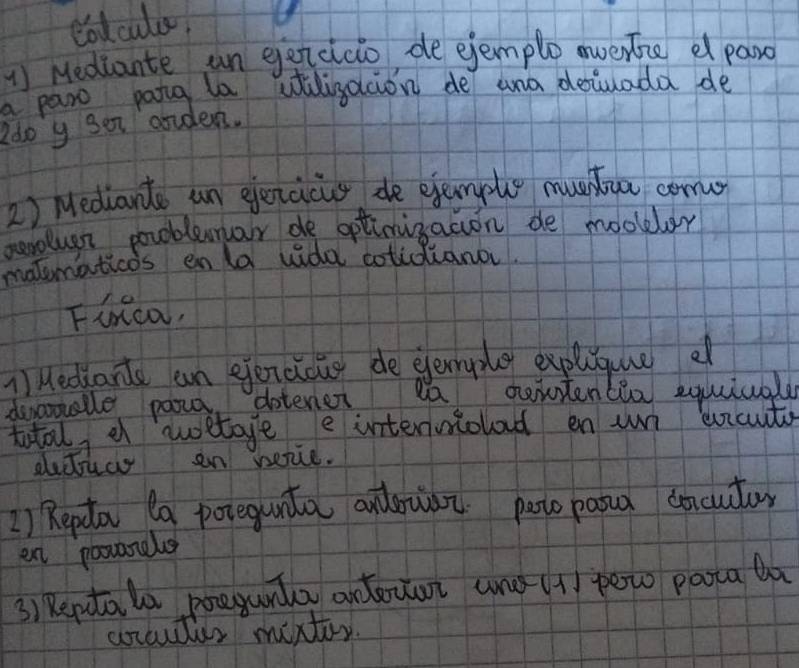 Cálculo.
1) Mediante un ejercicio de ejemplo muestre el paso
a paso para la utilización de una derivada de
2do y 3er orden.
2) Mediante un ejercicio de ejemplo muestra como
resolver problemas de optimización de modelos
matemáticos en la vida cotidiana.
Física.
1) Mediante un ejercicio de ejemplo explique el
desarrollo para obtener la resistencia equivale
total, el voltaje e intensidad en un circuito
electrico en serie.
2) Repita la pregunta anterior pero para circuitos
en pararelo
3) Repita la pregunta anterior uno (1) pero para la
circuitos mixtos.